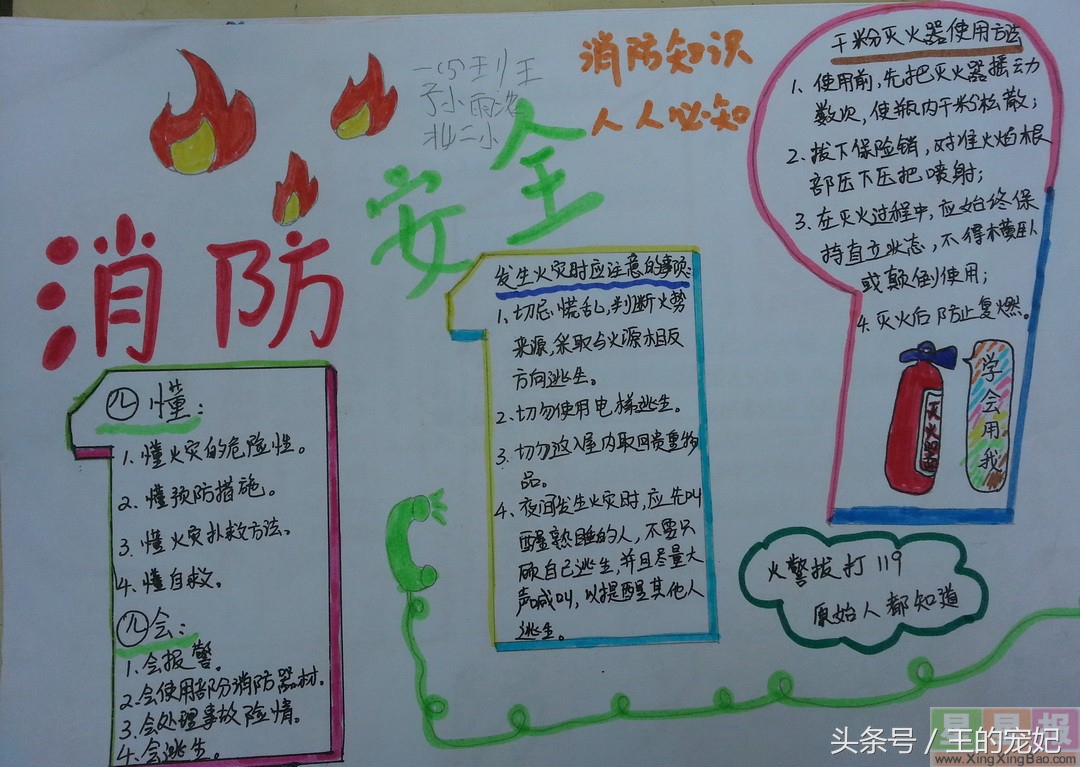 消防安全
一(5)班王
子小雨
北二小
消防知识
人人必知
四懂：
1.懂火灾的危险性。
2.懂预防措施。
3.懂火灾扑救方法。
4.懂自救。
四会：
1.会报警。
2.会使用部分消防器材。
3.会处理事故险情。
4.会逃生。
发生火灾时应注意的事项：
1.切忌慌乱,判断火势
来源,采取与火源相反
方向逃生。
2.切勿使用电梯逃生。
3.切勿返入屋内取回贵重物
品。
4.夜间发生火灾时,应先叫
醒熟睡的人,不要只
顾自己逃生,并且尽量大
声喊叫,以提醒其他人
逃生。
干粉灭火器使用方法
1.使用前,先把灭火器摇动
数次,使瓶内干粉松散;
2.拔下保险销,对准火焰根
部压下压把喷射;
3.在灭火过程中,应始终保
持直立状态,不得横卧
或颠倒使用;
4.灭火后防止复燃。
灭火器
学会用我
火警拔打119
原始人都知道
星星报
头条号／王的宠妃
www.XingXingBao.com